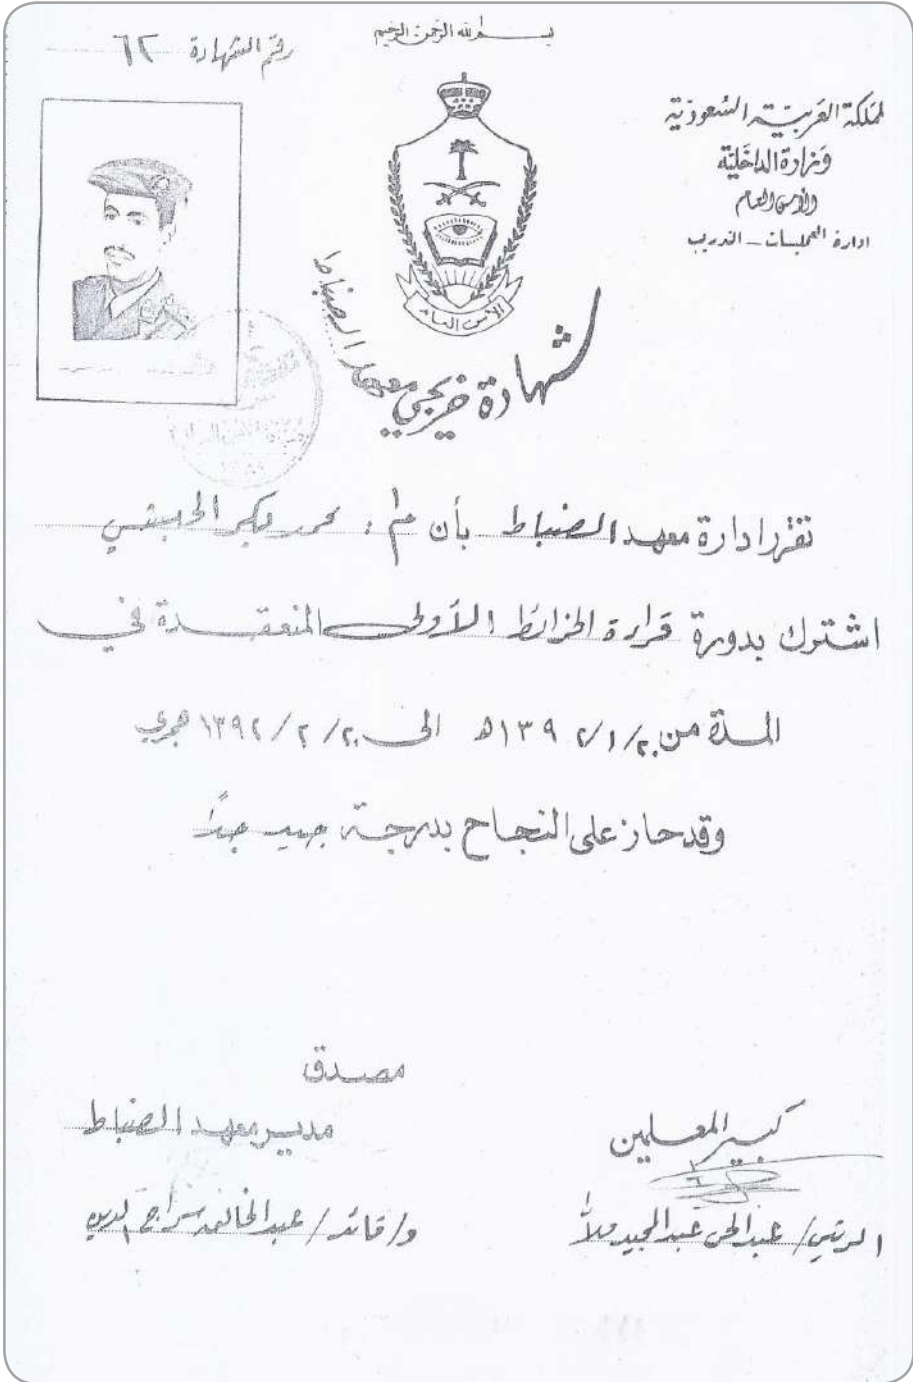 بسم الله الرحمن الرحيم
رقم الشهادة ٦٢
المملكة العربية السعودية
وزارة الداخلية
الأمن العام
ادارة العمليات - التدريب
الأمن العام
شهادة خريجي معهد الضباط
تقرر ادارة معهد الضباط بأن م/أ: محمد الحبشي
اشترك بدورة قراءة الخرائط الأولى المنعقدة في
المدة من ٢٠/١/١٣٩٢ه الى ٢٠/٢/١٣٩٢ هجري
وقد حاز على النجاح بدرجة جيد جداً
مصدق
مدير معهد الضباط
و/قائد/ عبدالخالق سراج الدين
كبير المعلمين
الرئيس/ عبدالحي عبدالمجيد ملاً